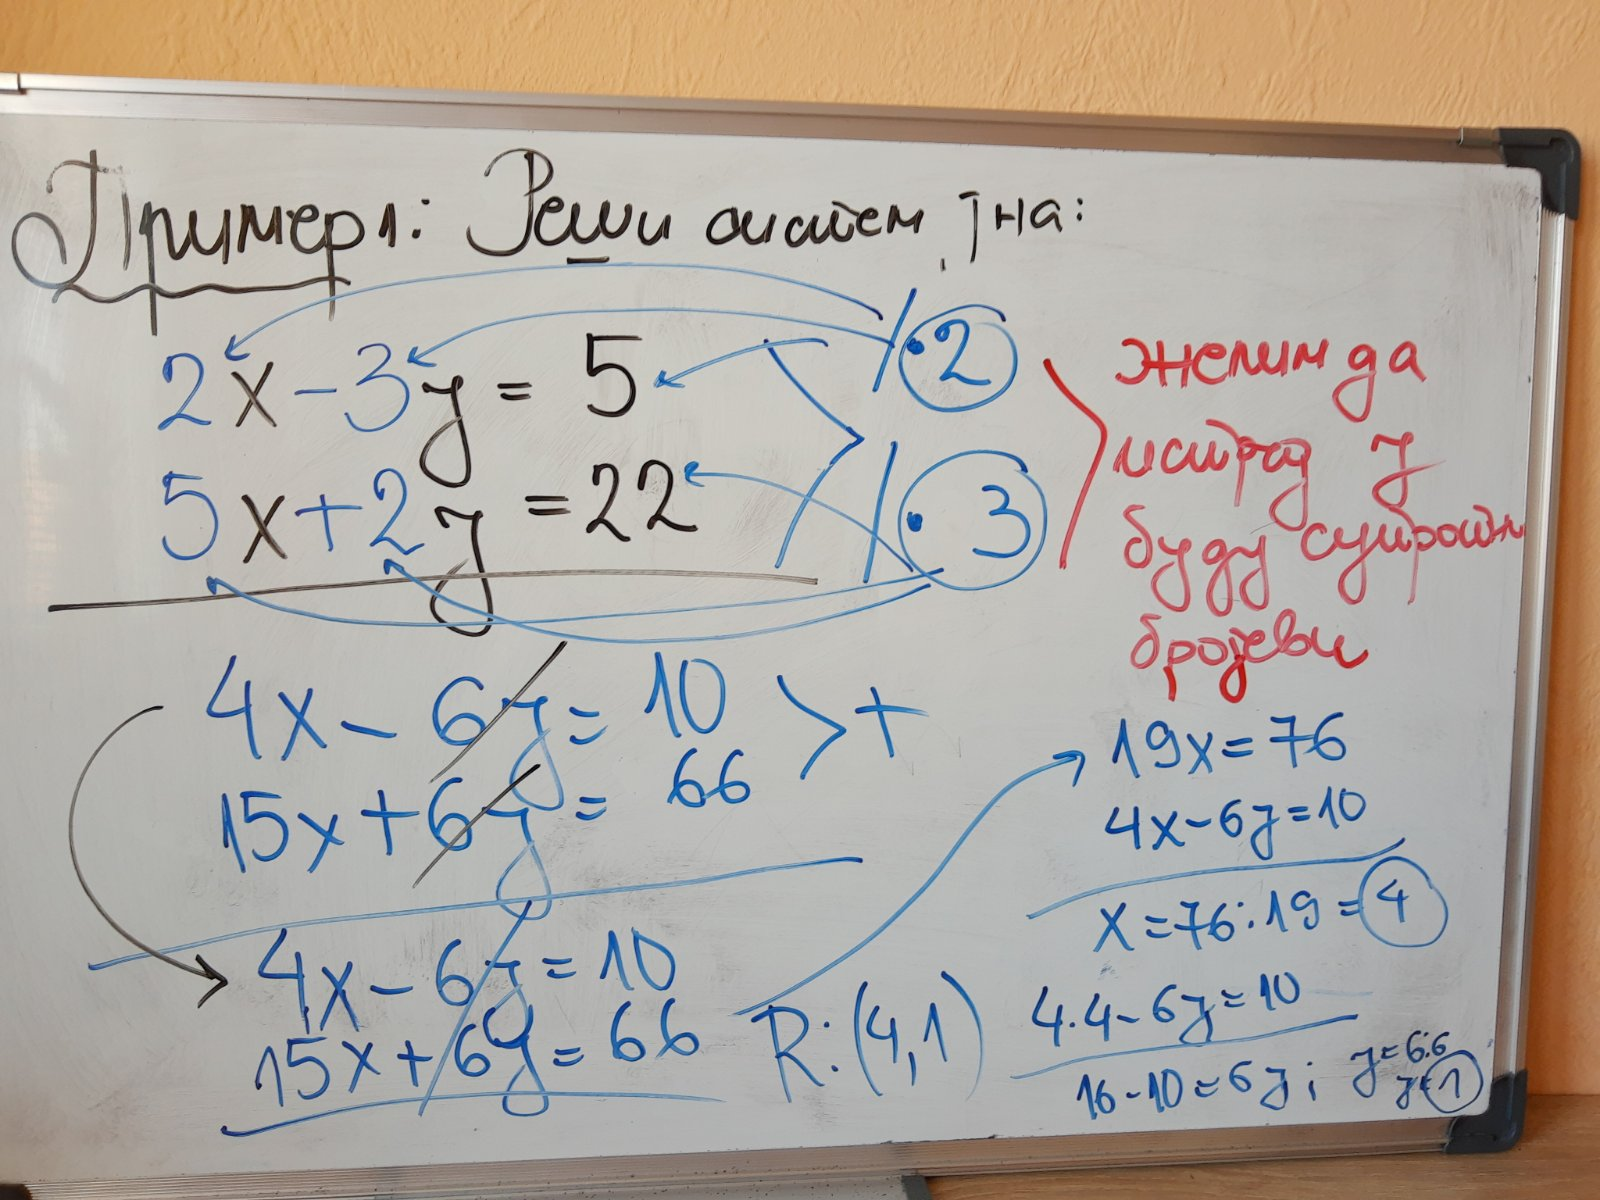 Пример 1: Реши систем јна:
2x - 3y = 5 / · 2
5x + 2y = 22 / · 3
желим да
испред y
буду супротни
бројеви
4x - 6y = 10 > +
15x + 6y = 66
4x - 6y = 10
15x + 6y = 66
R: (4,1)
19x = 76
4x - 6y = 10
x = 76:19 = 4
4·4 - 6y = 10
16 - 10 = 6y; y = 6:6
y = 1